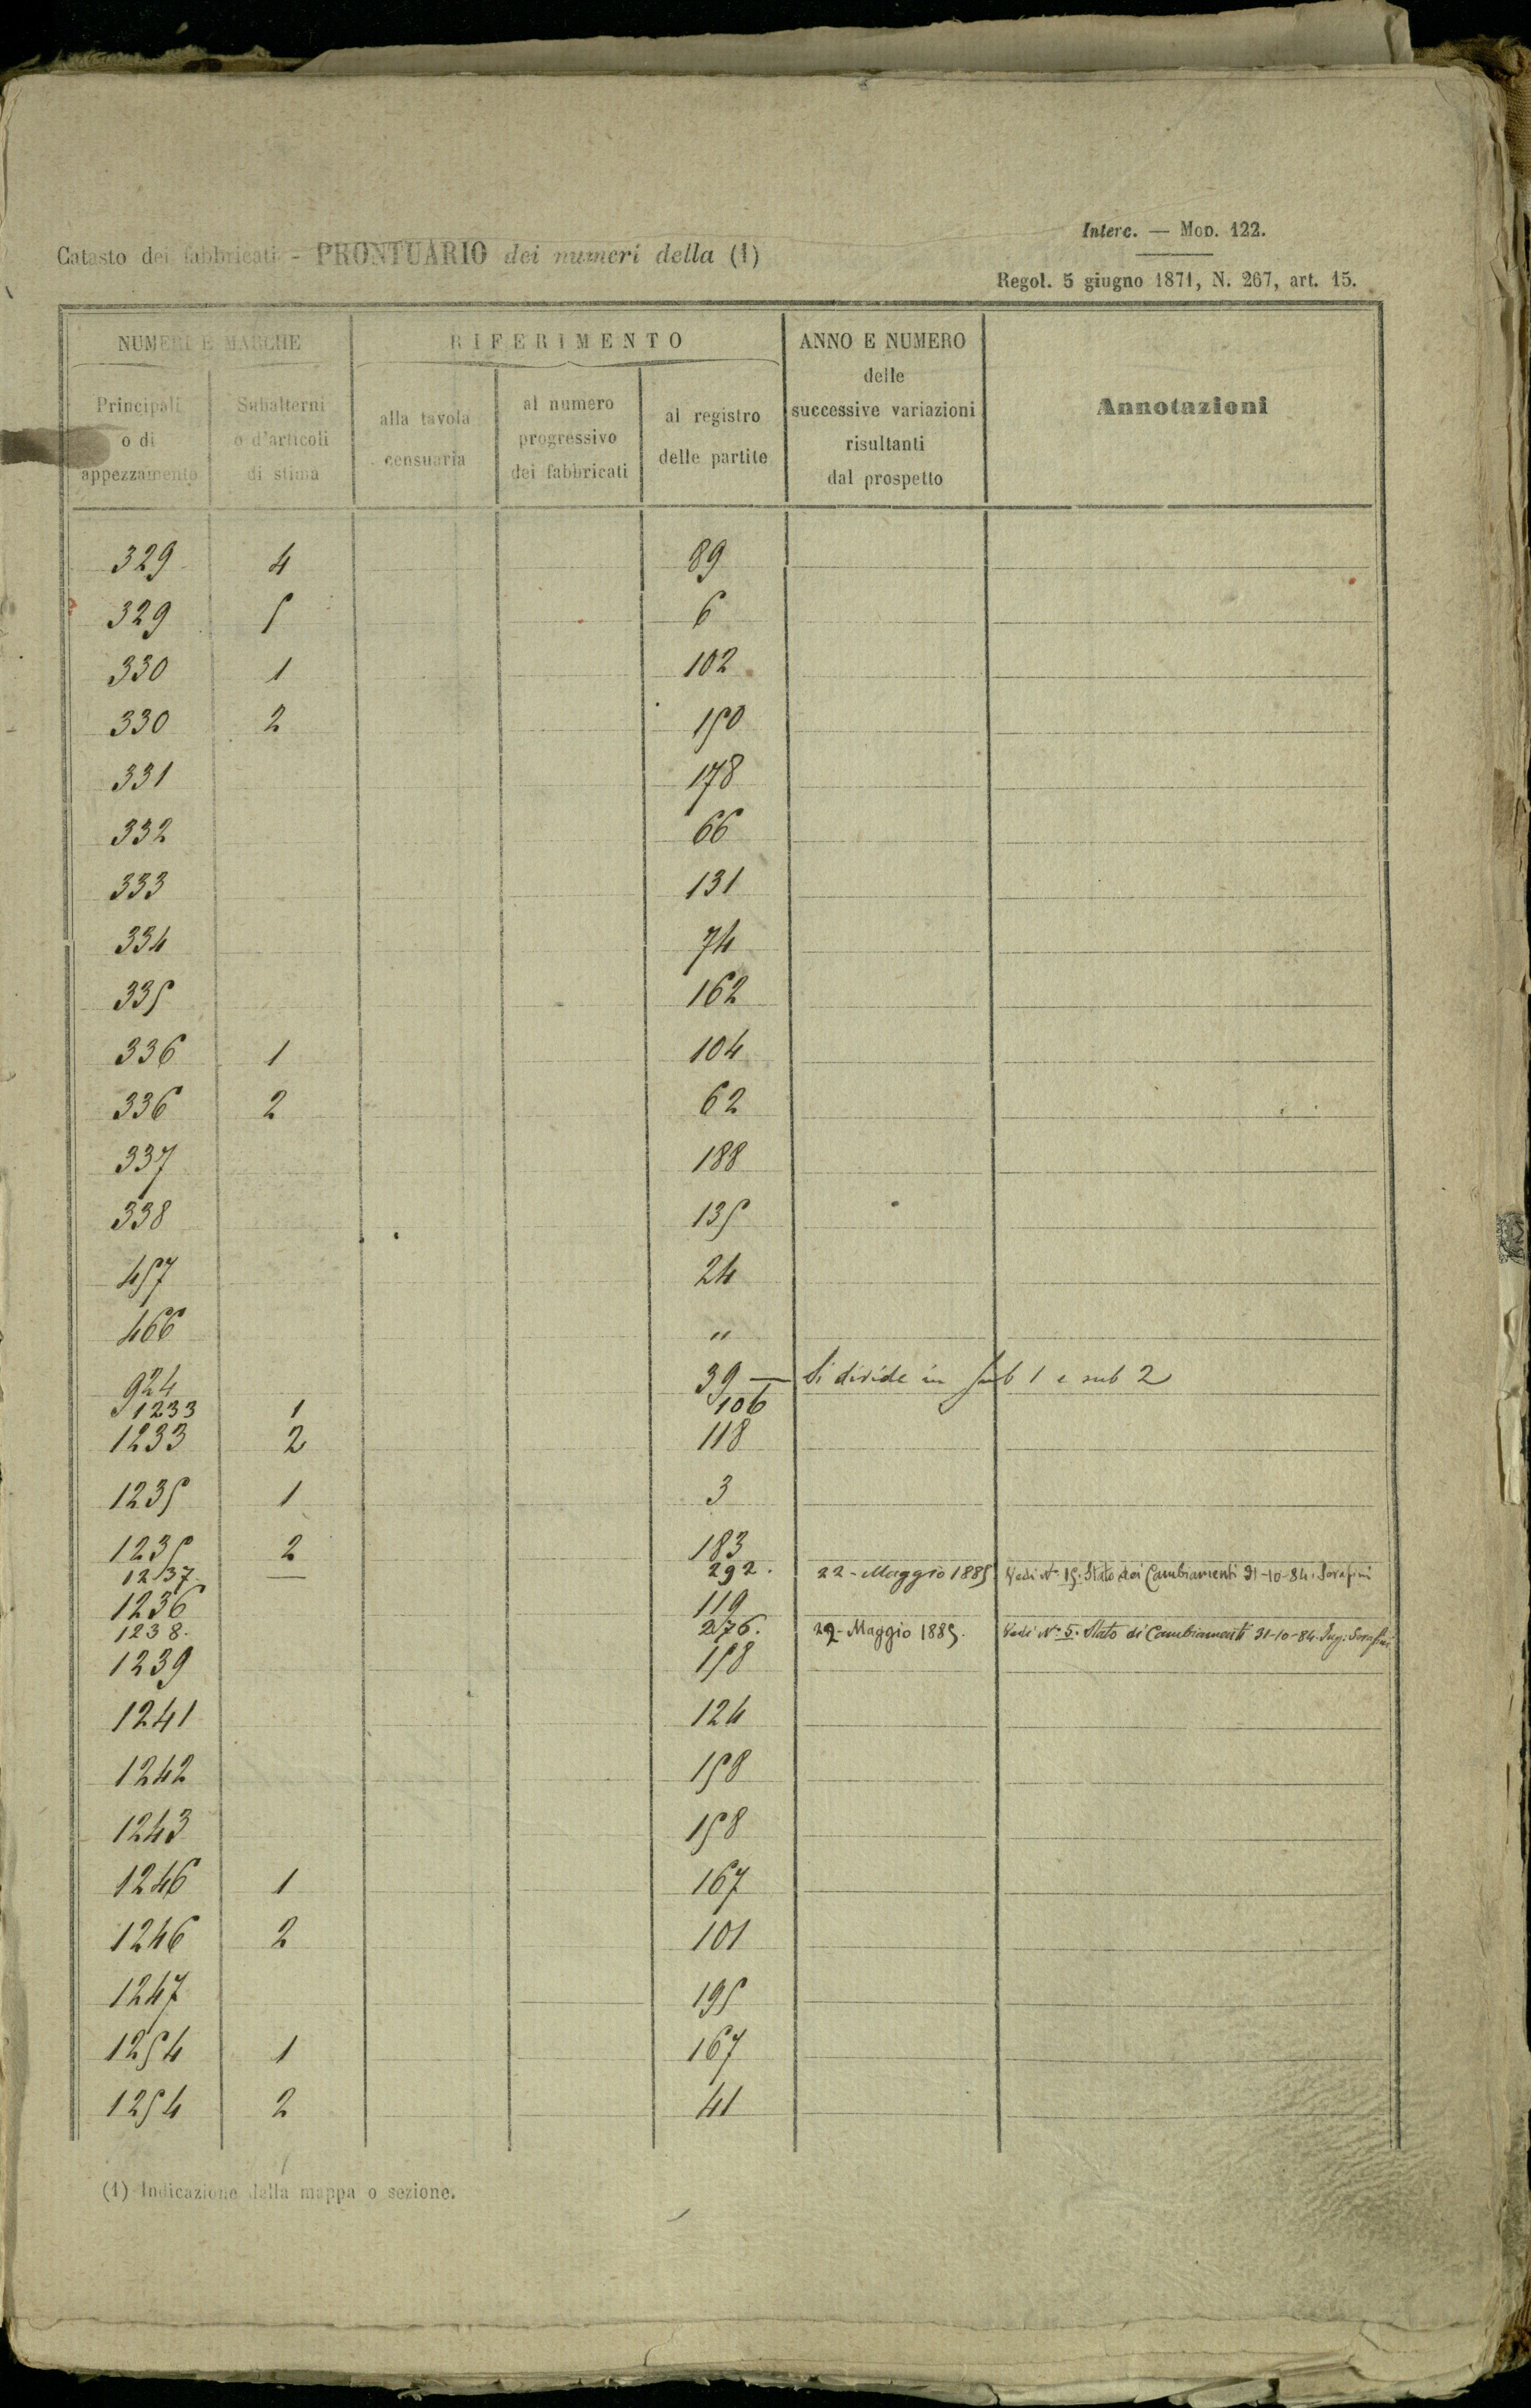 Interc. — Mod. 122.
Catasto dei fabbricati - PRONTUARIO dei numeri della (1)
Regol. 5 giugno 1871, N. 267, art. 15.
NUMERI E MARCHE
RIFERIMENTO
ANNO E NUMERO
delle
successive variazioni
risultanti
dal prospetto
Annotazioni
Principali
o di
appezzamento
Subalterni
o d'articoli
di stima
alla tavola
censuaria
al numero
progressivo
dei fabbricati
al registro
delle partite
329 4 89
329 5 6
330 1 102
330 2 150
331 178
332 66
333 131
334 74
335 162
336 1 104
336 2 62
337 188
338 135
457 24
466 "
924 39 — Si divide in sub 1 e sub 2
1233 1 106
1233 2 118
1235 1 3
1235 2 183
1237 — 292. 22 - Maggio 1885 Vedi N. 15. Stato dei Cambiamenti 31-10-84. Serafini
1236 119
1238. 276. 22 - Maggio 1885. Vedi N. 5. Stato di Cambiamenti 31-10-84. Ing: Serafini
1239 158
1241 124
1242 158
1243 158
1246 1 167
1246 2 101
1247 195
1254 1 167
1254 2 41
(1) Indicazione della mappa o sezione.